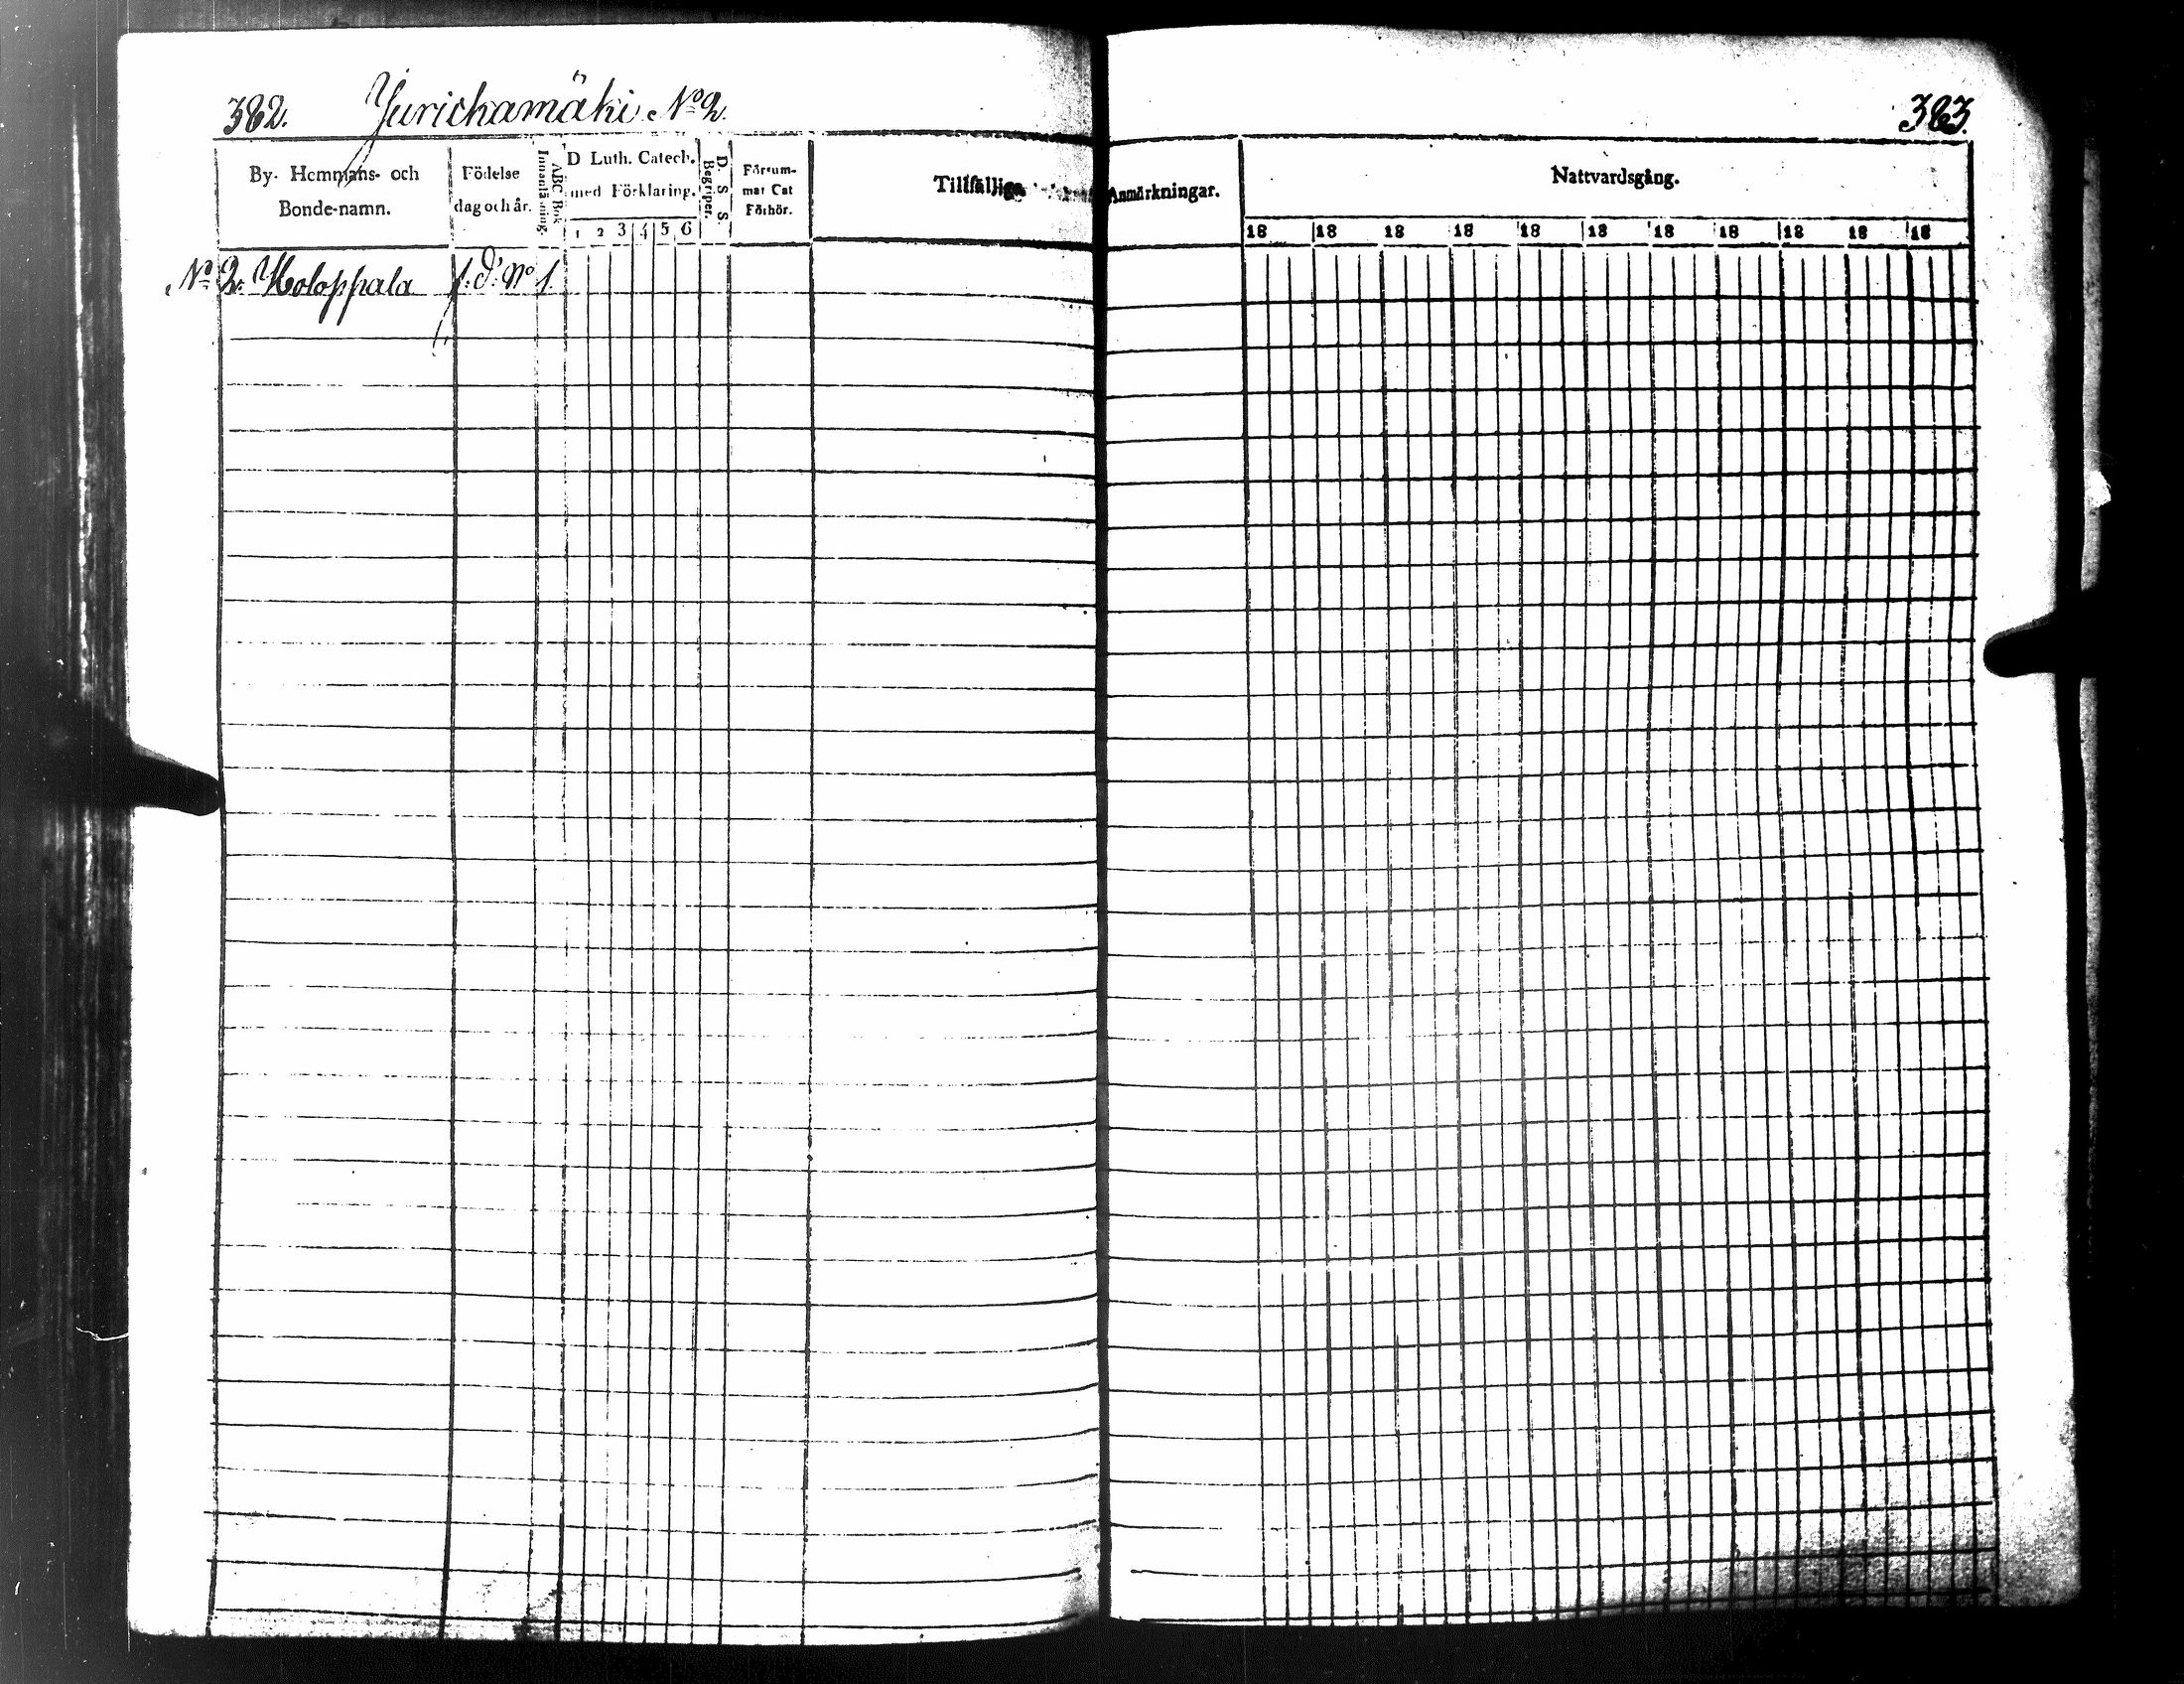 382. Jurickamäki No 2.
By- Hemmans- och Bonde-namn.
Födelse dag och år.
ABC Bok Innanläsning.
D Luth. Catech. med Förklaring.
1 2 3 4 5 6
D. S. S. Begriper.
Försum- mat Cat Förhör.
Tillfällige
No 2. Holoppala f. d. No 1.
383.
Anmärkningar.
Nattvardsgång.
18 18 18 18 18 18 18 18 18 18 18